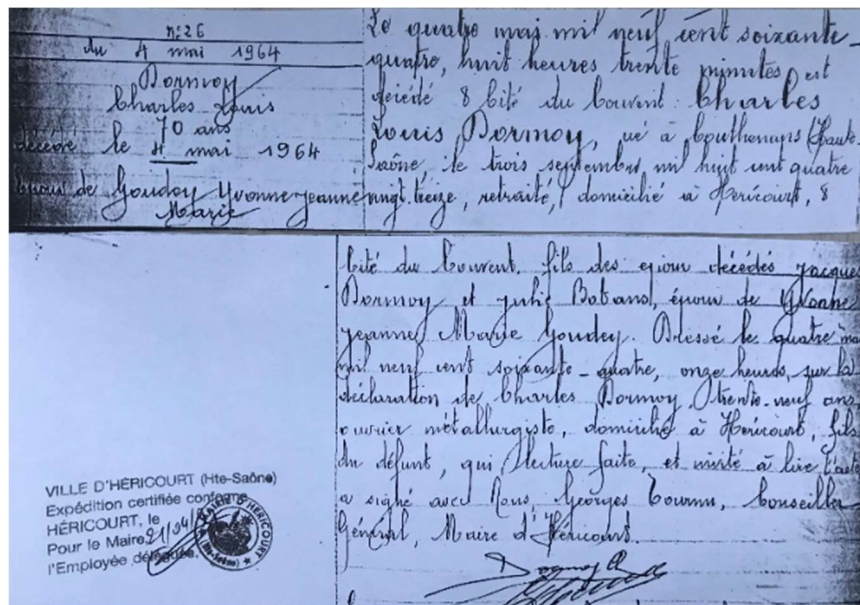 n: 26
du 4 mai 1964
Dormoy
Charles Louis
70 ans
décédé le 4 mai 1964
époux de Goudey Yvonne Jeanne
Marie
Le quatre mai mil neuf cent soixante-
quatre, huit heures trente minutes, est
décédé 8 Cité du Couvent: Charles
Louis Dormoy, né à Couthenans (Haute-
Saône, le trois septembre mil huit cent quatre
vingt-treize, retraité, domicilié à Héricourt, 8
Cité du Couvent, fils des époux décédés Jacques
Dormoy et Julie, époux de Yvonne
Jeanne Marie Goudey. Dressé le quatre mai
mil neuf cent soixante-quatre, onze heures, sur la
déclaration de Charles Dormoy, trente-neuf ans,
ouvrier métallurgiste, domicilié à Héricourt, fils
du défunt, qui, lecture faite, et invité à lire l'acte
a signé avec Nous, Georges, Conseiller
Général, Maire d'Héricourt.
Dormoy C
VILLE D'HÉRICOURT (Hte-Saône)
Expédition certifiée conforme
HÉRICOURT, le
Pour le Maire,
l'Employée déléguée.